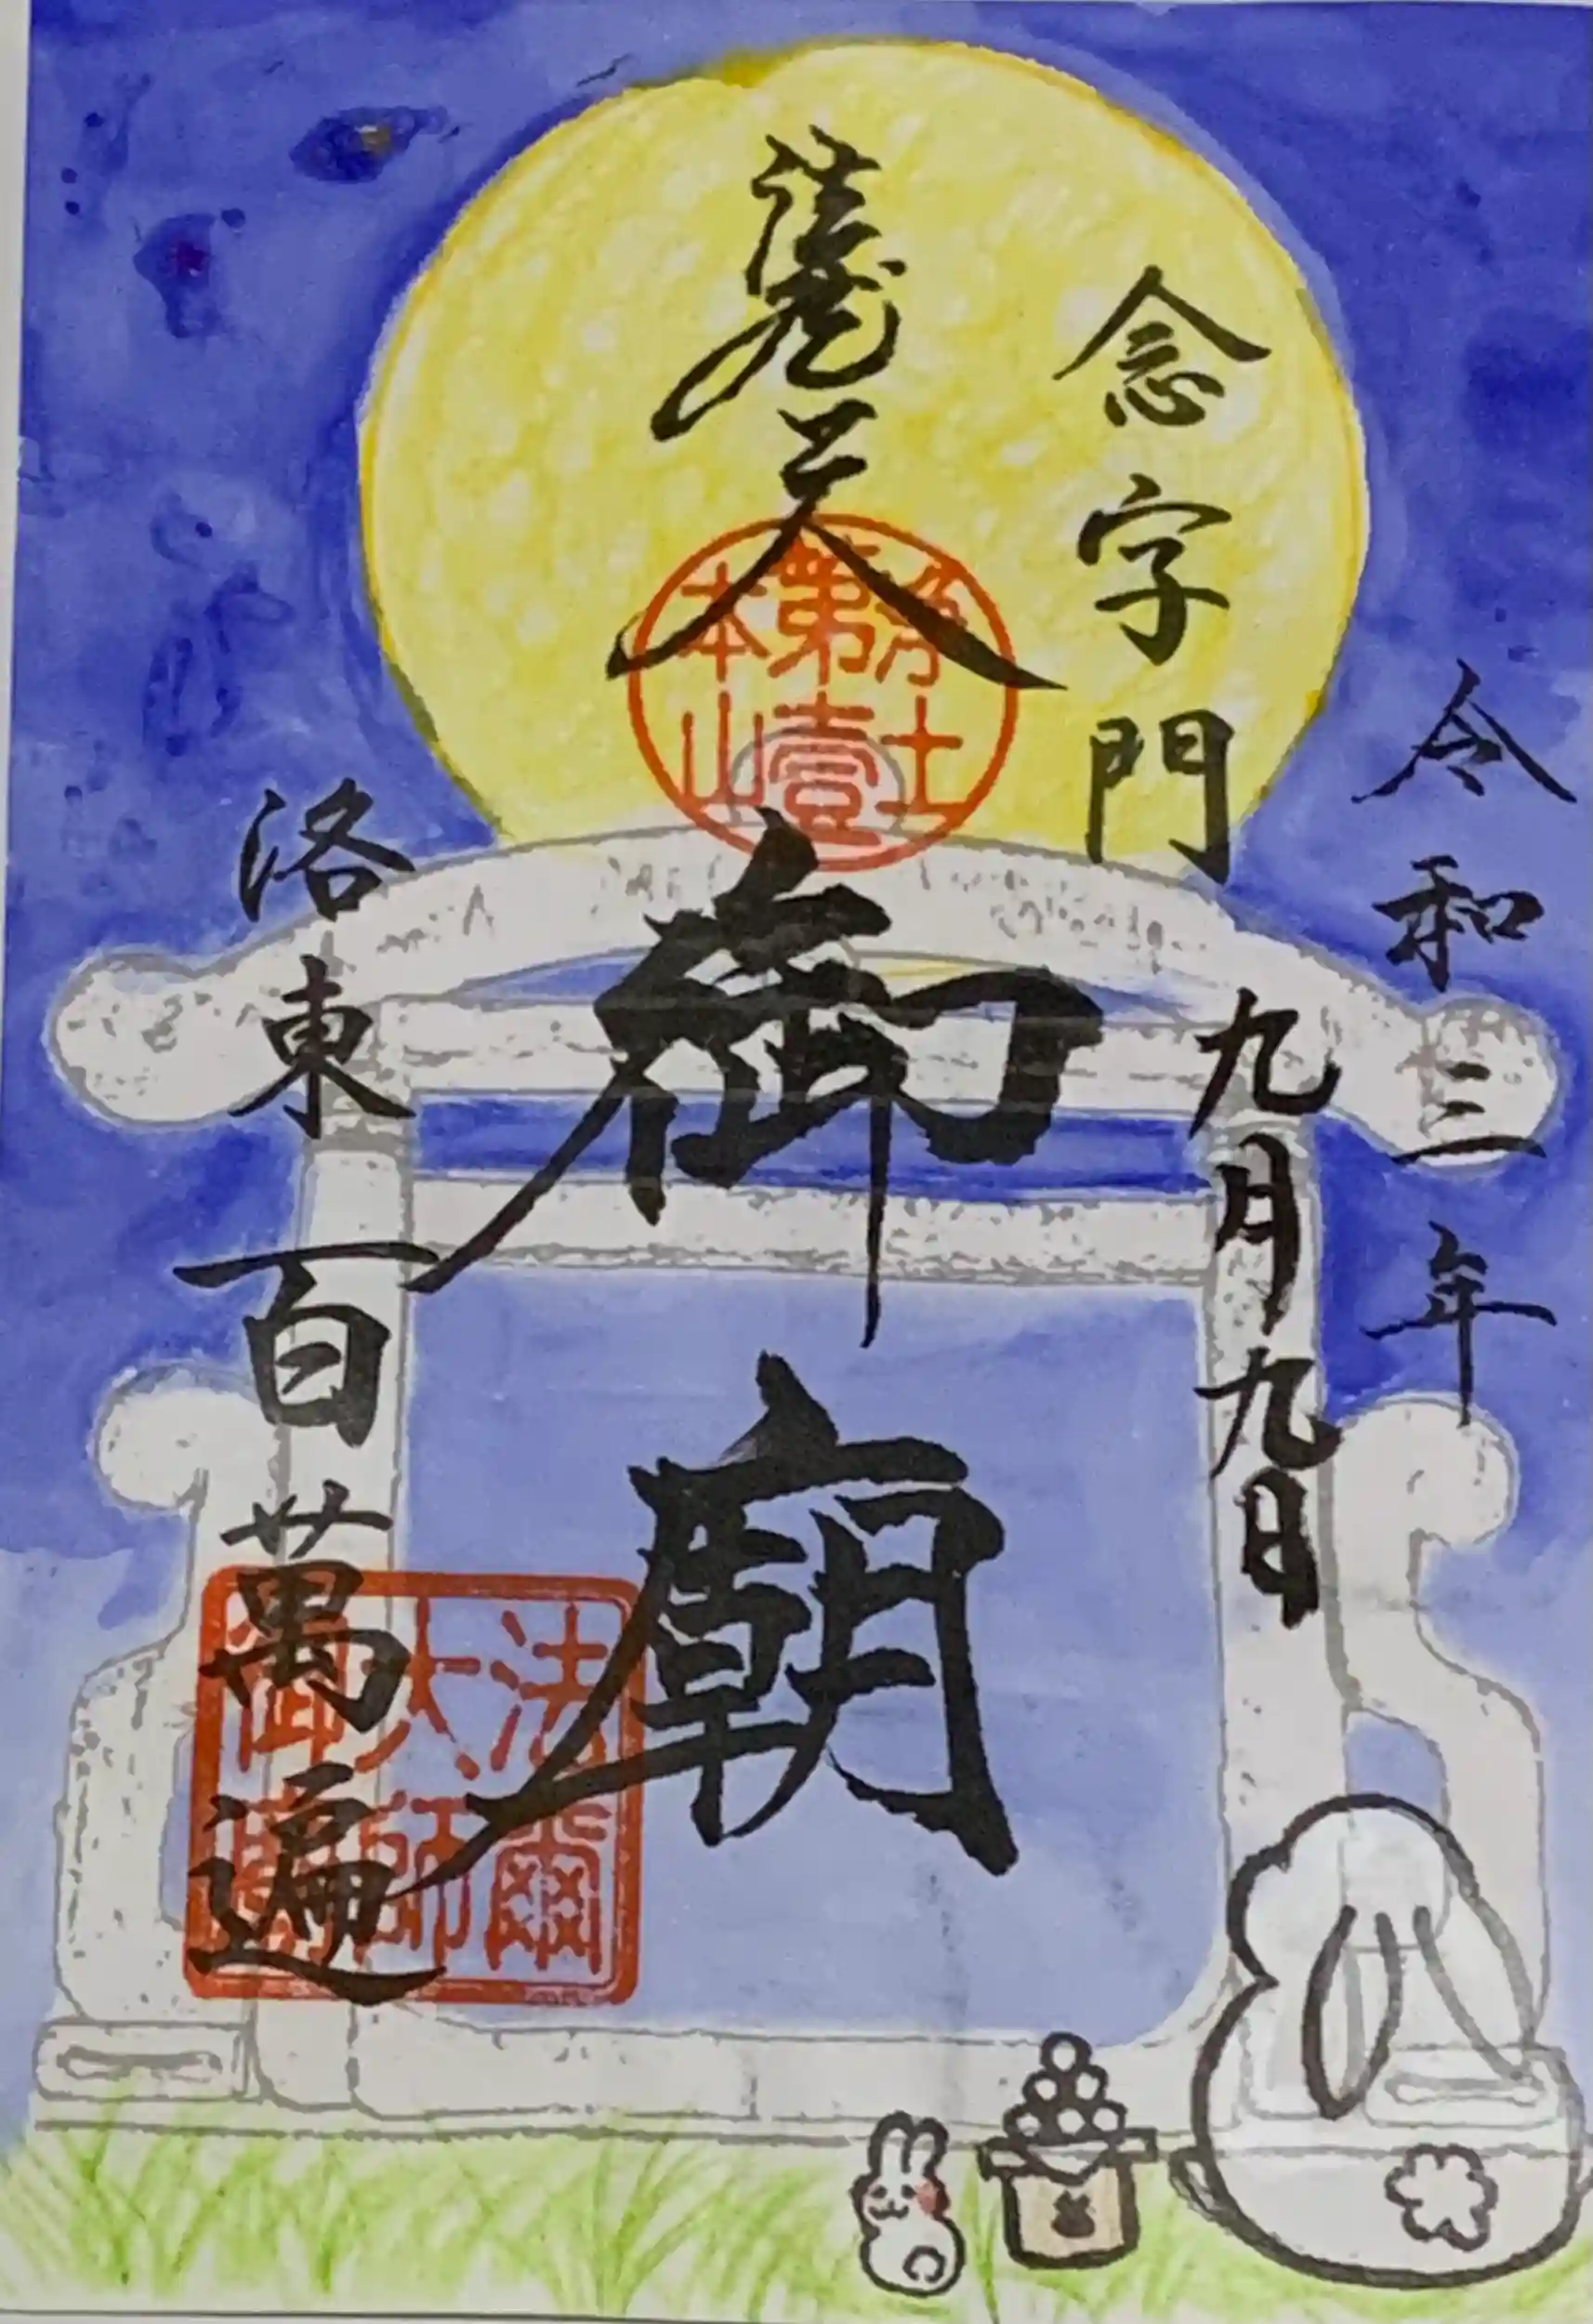 令和三年
九月九日
念字門
護念
御廟
洛東百萬遍
浄土
第壹
本山
法爾
大師
御廟